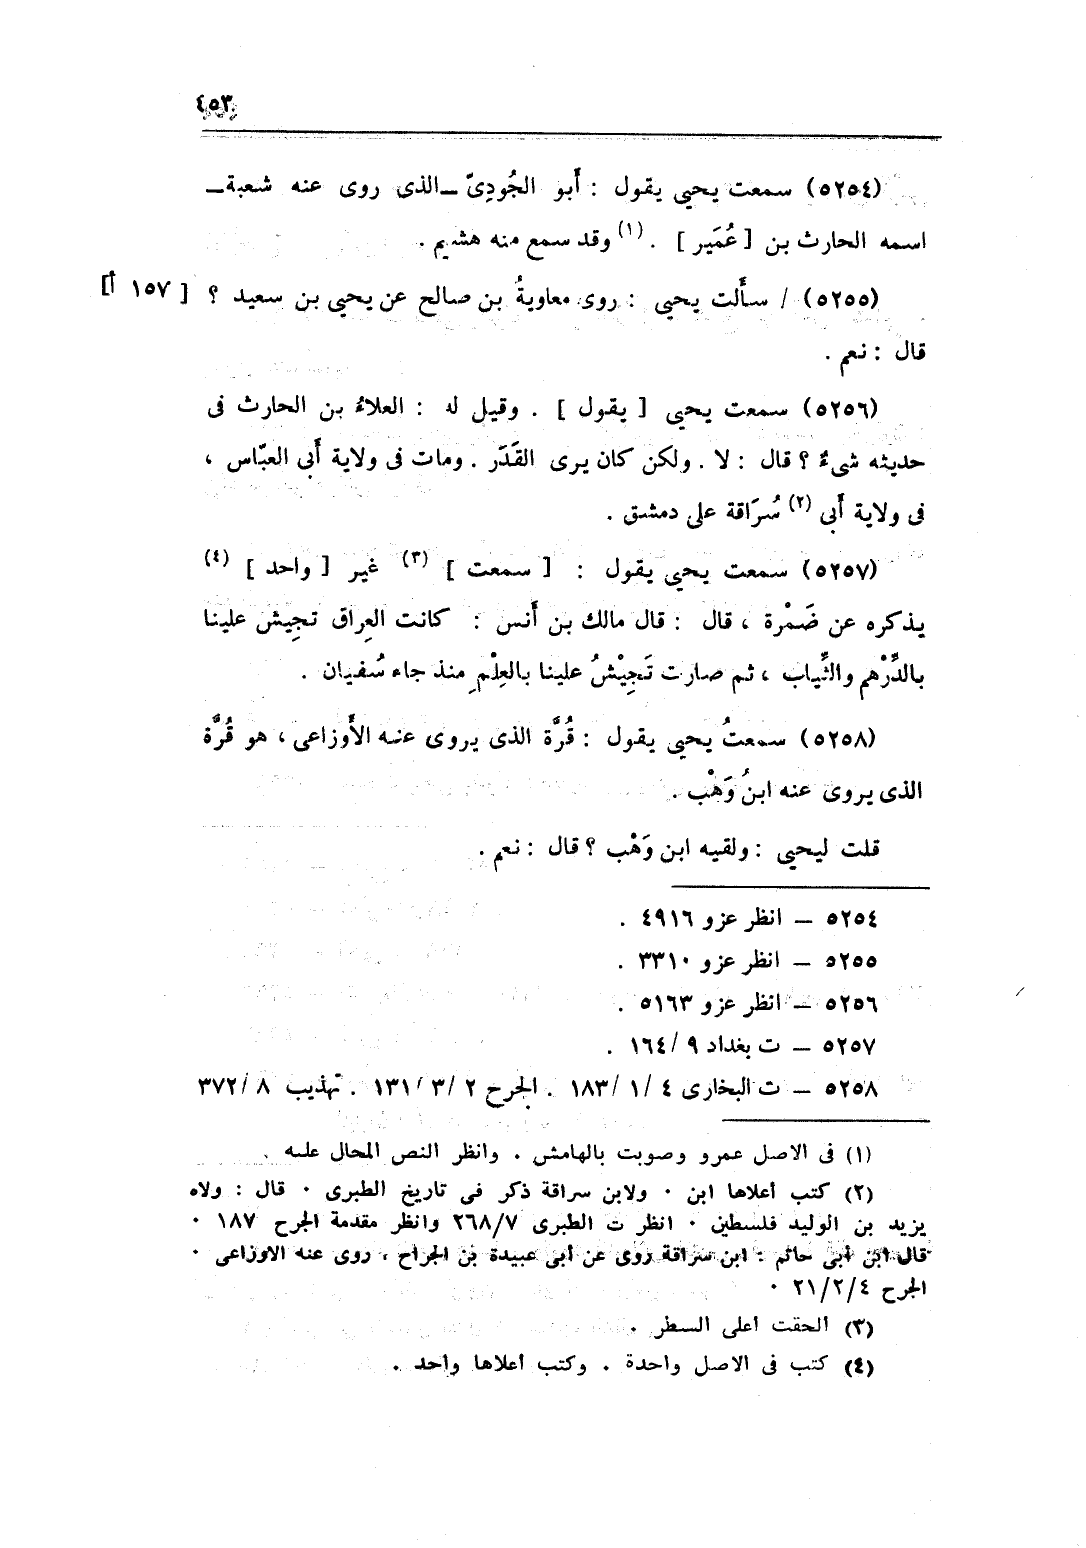 ٤٥٣
(٥٢٥٤) سمعت يحيى يقول : أَبو الجُودِىّ ــ الذى روى عنه شعبة ــ
اسمه الحارث بن [ عُمَير ] . (١) وقد سمع منه هشيم .
(٥٢٥٥) / سأَلت يحيى : روى معاويةُ بن صالح عن يحيى بن سعيد ؟ [ ١٥٧ أ ]
قال : نعم .
(٥٢٥٦) سمعت يحيى [ يقول ] . وقيل له : العلاءُ بن الحارث فى
حديثه شىءٌ ؟ قال : لا . ولكن كان يرى القَدَر . ومات فى ولاية أَبى العبّاس ،
فى ولاية أَبى (٢) سُرَاقة على دمشق .
(٥٢٥٧) سمعت يحيى يقول : [ سمعت ] (٣) غير [ واحد ] (٤)
يذكره عن ضَمْرة ، قال : قال مالك بن أَنس : كانت العِراق تجِيش علينا
بالدِّرْهم والثِّياب ، ثم صارت تَجِيْشُ علينا بالعِلْمِ منذ جاء سُفيان .
(٥٢٥٨) سمعتُ يحيى يقول : قُرَّة الذى يروى عنه الأَوزاعى ، هو قُرَّة
الذى يروى عنه ابنُ وَهْب .
قلت ليحيى : ولقيه ابن وَهْب ؟ قال : نعم .
٥٢٥٤ ــ انظر عزو ٤٩١٦ .
٥٢٥٥ ــ انظر عزو ٣٣١٠ .
٥٢٥٦ ــ انظر عزو ٥١٦٣ .
٥٢٥٧ ــ ت بغداد ٩ /١٦٤ .
٥٢٥٨ ــ ت البخارى ٤ /١ /١٨٣ . الجرح ٢ /٣ /١٣١ . تهذيب ٨ /٣٧٢
(١) فى الاصل عمرو وصوبت بالهامش . وانظر النص المحال عليه .
(٢) كتب أعلاها ابن . ولابن سراقة ذكر فى تاريخ الطبرى . قال : ولاه
يزيد بن الوليد فلسطين . انظر ت الطبرى ٢٦٨/٧ وانظر مقدمة الجرح ١٨٧ .
قال ابن أبى حاتم : ابن سراقة روى عن أبى عبيدة بن الجراح ، روى عنه الاوزاعى .
الجرح ٢١/٢/٤ .
(٣) الحقت أعلى السطر .
(٤) كتب فى الاصل واحدة . وكتب أعلاها واحد .